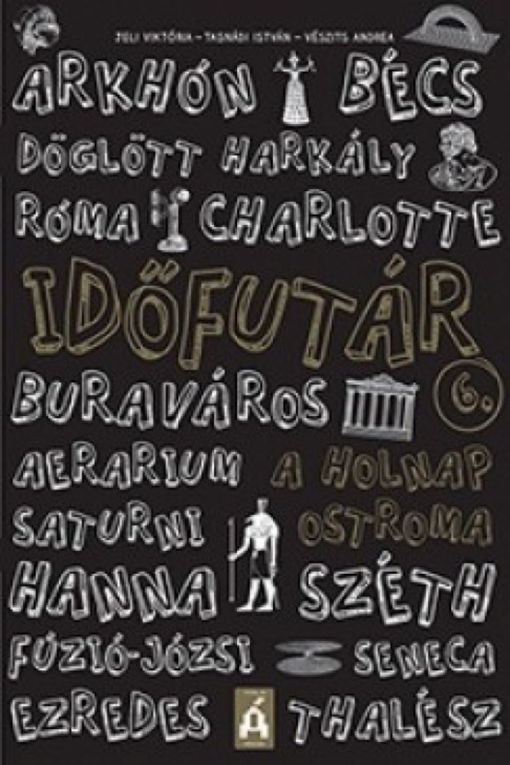 JELI VIKTÓRIA – TASNÁDI ISTVÁN – VÉSZITS ANDREA
ARKHÓN BÉCS
DÖGLÖTT HARKÁLY
RÓMA CHARLOTTE
IDŐFUTÁR
6.
BURAVÁROS
AERARIUM A HOLNAP
SATURNI OSTROMA
HANNA SZÉTH
FÚZIÓ-JÓZSI SENECA
EZREDES THALÉSZ